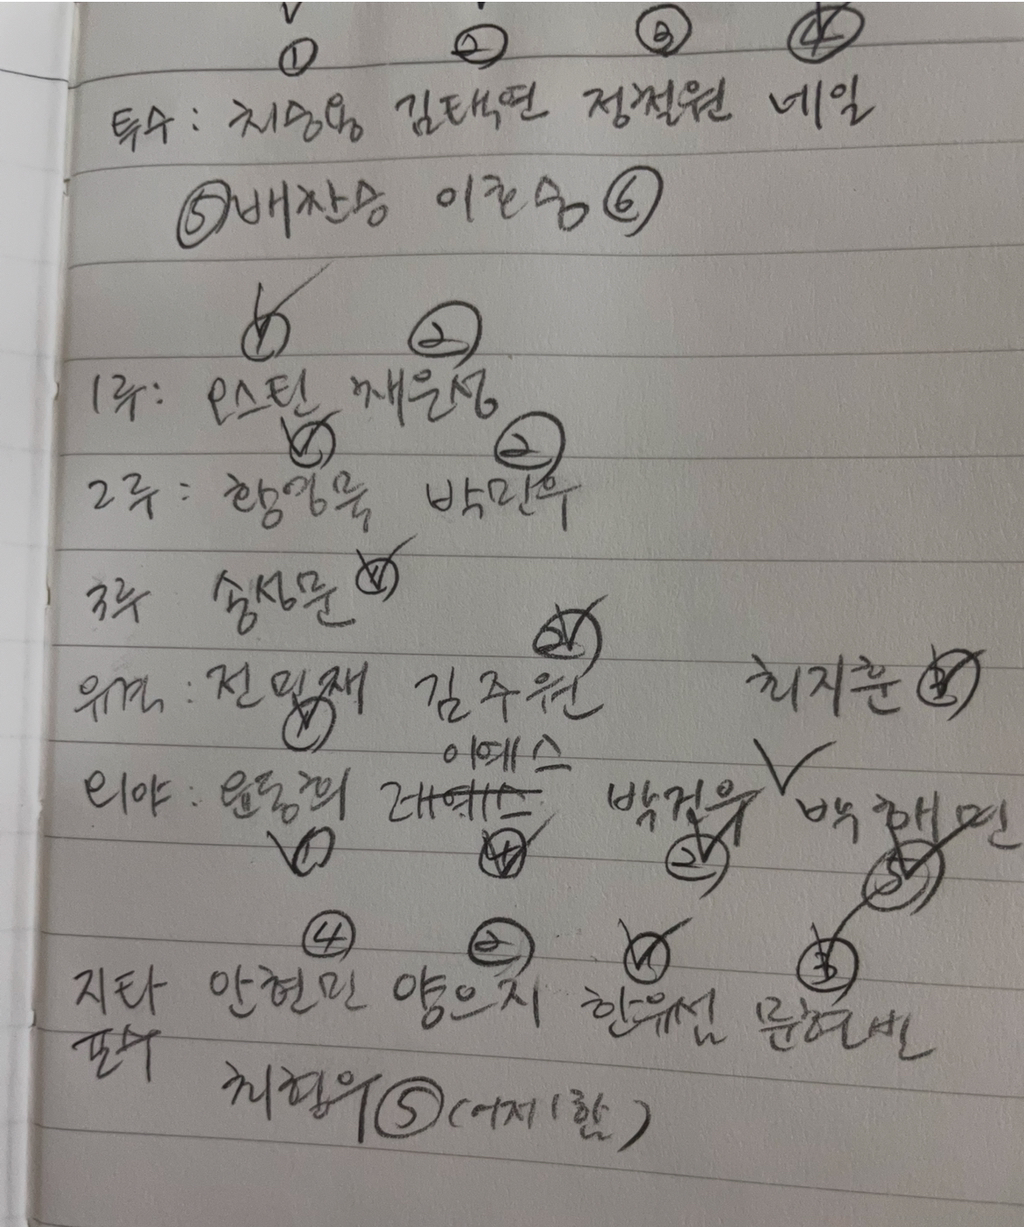 ① ② ③ ④
투수: 최승용 김택연 정철원 네일
⑤배찬승 이호성⑥
① ②
1루: 오스틴 채은성
① ②
2루: 황영묵 박민우
3루 송성문①
②
유격: 전민재 김주원 최지훈③
①
이예스
외야: 윤동희 레예스 박건우 박해민
① ④ ② ⑤
④ ② ① ③
지타 안현민 양으지 한유섬 문현빈
포수
최형우⑤(어제1함)